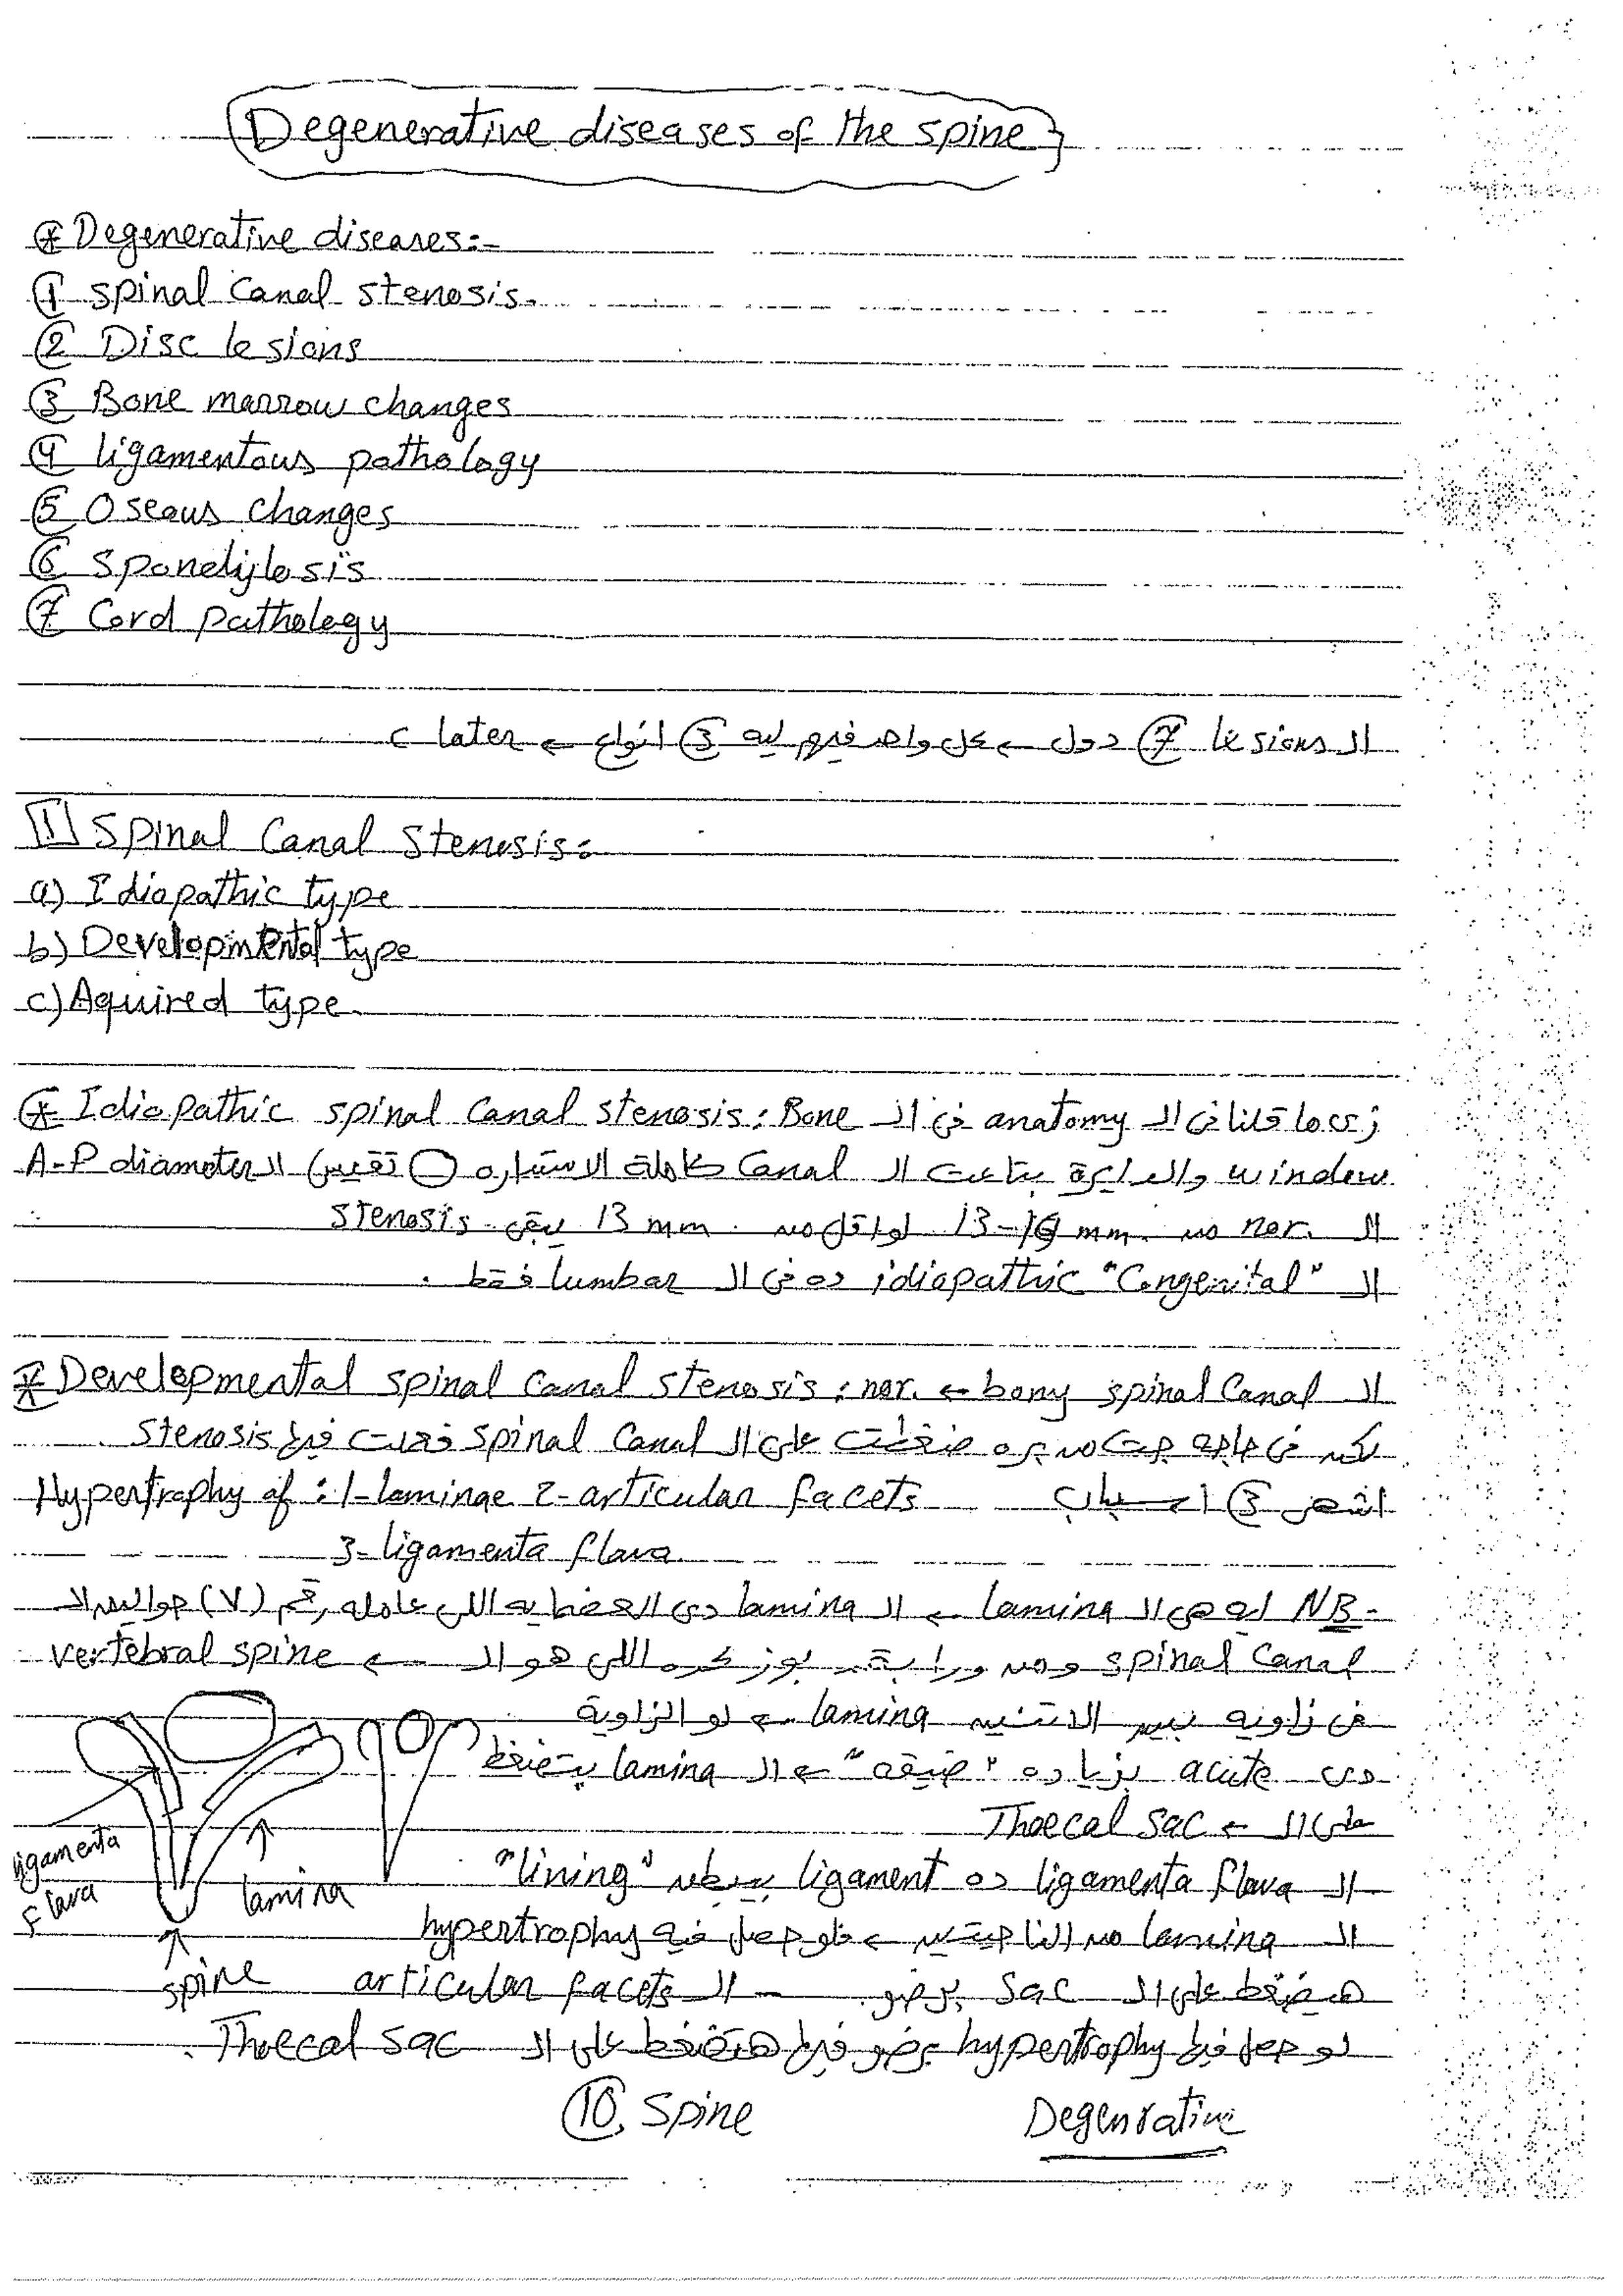 Degenerative diseases of the spine
* Degenerative diseases:-
① spinal Canal stenosis.
② Disc lesions
③ Bone marrow changes
④ ligamentous pathology
⑤ Oseous changes
⑥ Spondylosis
⑦ Cord pathology
الـ lesions ⑦ دول ← كل واحد فيهم ليه ③ انواع ← later
1 Spinal Canal Stenosis:
a) Idiopathic type
b) Developmental type
c) Aquired type
* Idiopathic spinal Canal stenosis: Bone زى ما قلنا فى الـ anatomy فى الـ
window والدايرة بتاعت الـ Canal كاملة الاستداره تقيس الـ A-P diameter
الـ nor. من 13-16 mm لو اقل من 13 mm يبقى stenosis
الـ "Congenital" idiopathic ده فى الـ lumbar فقط.
* Developmental spinal Canal stenosis: nor. ← bony spinal Canal الـ
لكن فى حاجه جت من بره ضغطت على الـ spinal Canal فعملت فيها stenosis
اشهر ③ اسباب Hypertrophy of: 1-laminae 2-articular facets
3-ligamenta flava
NB- ايه هى الـ lamina ← الـ lamina دى العضايه اللى عامله رقم (٧) حوالين الـ
spinal Canal ومن ورا بتـ بوز كده اللى هو الـ ← vertebral spine
فى زاويه بين الاتنين lamina ← لو الزاوية
دى acute بزياده "ضيقه" ← الـ lamina بتضغط
على الـ ← Thoecal sac
الـ ligamenta flava ده ligament بيبطن "lining"
الـ lamina من الناحيتين ← فلو حصل فيه hypertrophy
هيضغط على الـ sac برضو - الـ articular facets
لو حصل فيها hypertrophy برضو فيها هتضغط على الـ Thoecal sac.
ligamenta flava
lamina
spine
⑩. Spine
Degenrative